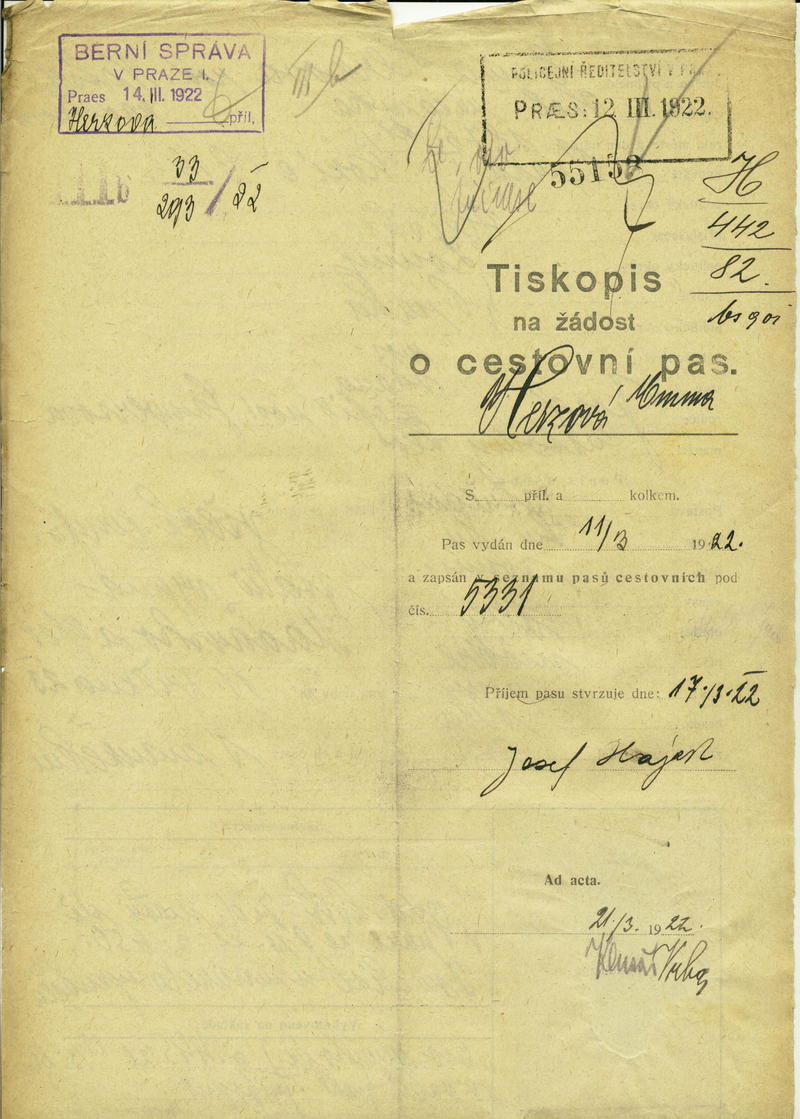 BERNÍ SPRÁVA
V PRAZE I.
Praes 14. III. 1922
příl.
33
293 / 22
III b
POLICEJNÍ ŘEDITELSTVÍ V
PRÆS: 12 III. 1922.
55132
H
442
82.
Tiskopis
na žádost
o cestovní pas.
Herzová Emma
S. příl. a kolkem.
Pas vydán dne 11/3 1922.
a zapsán v seznamu pasů cestovních pod
čís. 5331
Příjem pasu stvrzuje dne: 17./3.22
Josef Hájek
Ad acta.
21/3. 1922.